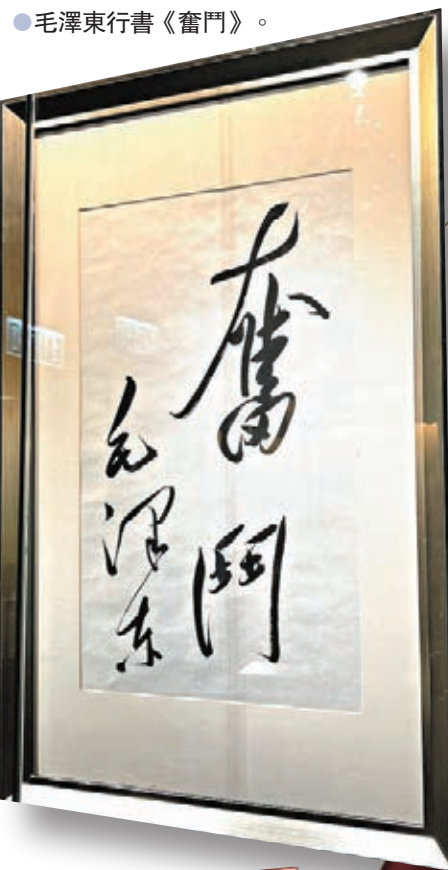 ●毛澤東行書《奮鬥》。
奮鬥
毛澤东